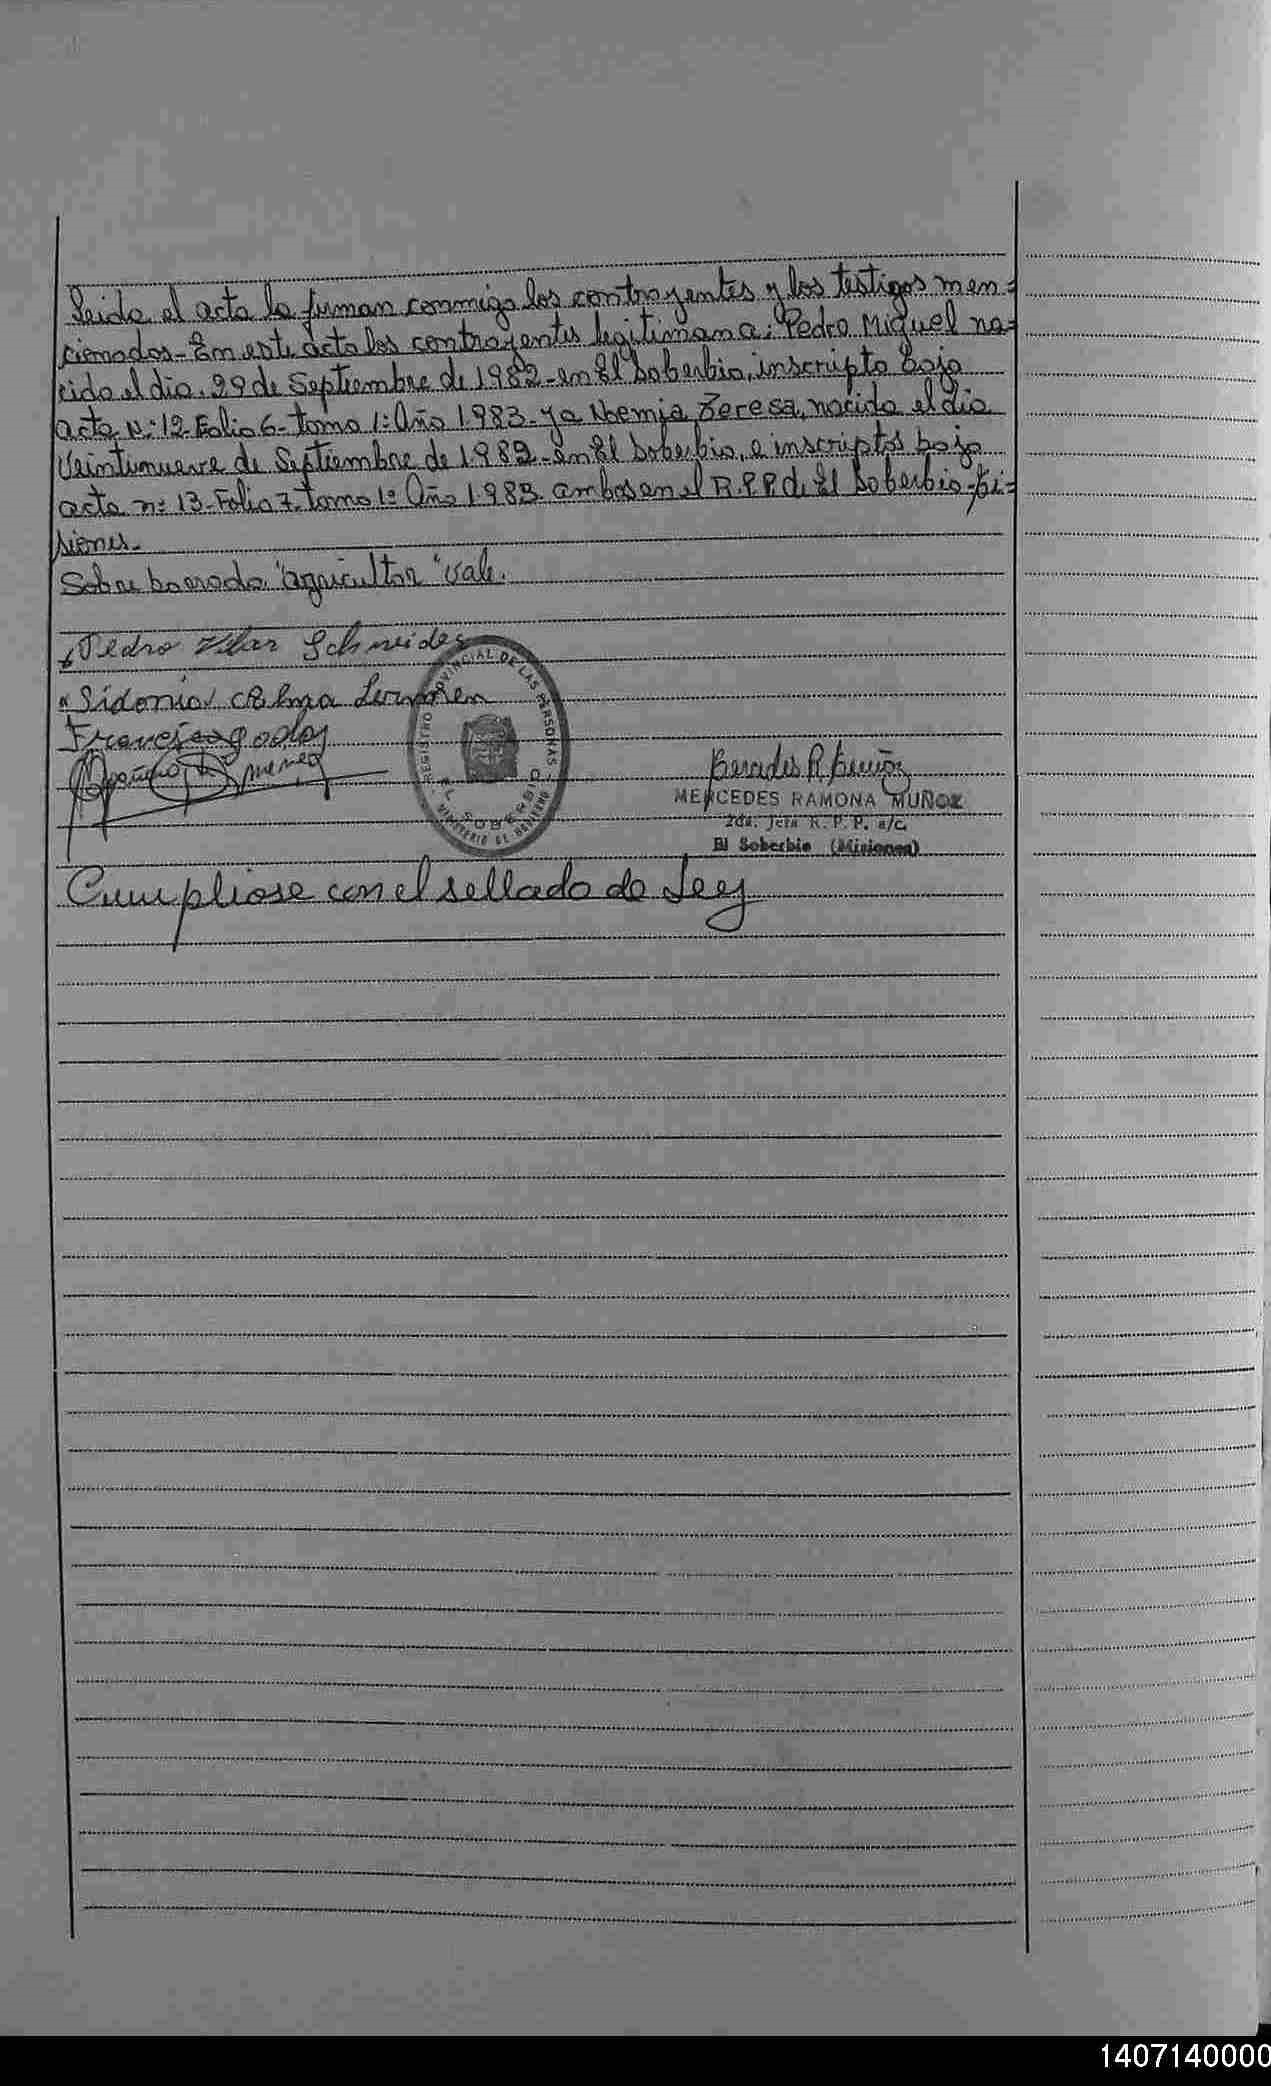 Leida el acta la firman conmigo los contrayentes y los testigos men=
cionados - En este acto los contrayentes legitiman a: Pedro Miguel na=
cido el dia, 29 de Septiembre de 1982 - en El Soberbio, inscripto bajo
acta N: 12 - Folio 6 - tomo 1: Año 1983 - y a Noemia Teresa, nacida el dia
Veintinueve de Septiembre de 1982 - en El Soberbio, e inscriptos bajo
acta nº 13 - Folio 7 - tomo 1º Año 1983 ambos en el R.P.P. de El Soberbio -
siones.-
Sobre borrado "agricultor" vale.
Pedro Schneider
Sidonia Alma
Francisco godoy
REGISTRO PROVINCIAL DE LAS PERSONAS
EL SOBERBIO
MINISTERIO DE GOBIERNO
MERCEDES RAMONA MUÑOZ
2da. Jefa R. P. P. a/c.
El Soberbio (Misiones)
Cumpliose con el sellado de Ley
1407140000